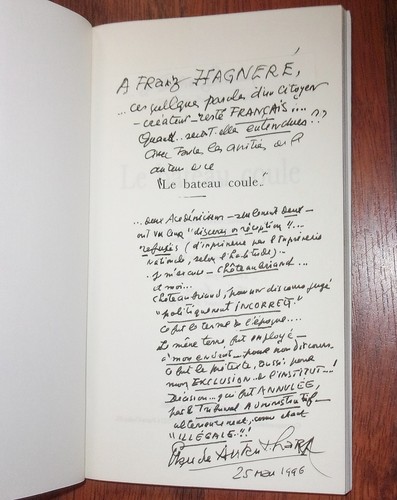 A Franz HAGNERÉ,
... ces quelques paroles d'un citoyen
- créateur - resté FRANÇAIS....
Quand... seront-elle entendues??
avec toutes les amitiés de l'
auteur de ce
"Le bateau coule"
...deux Académiciens - seulement deux -
ont vu leur "discours de réception"...
refusés (d'imprimerie par l'Imprimerie
Nationale, selon l'habitude)...
je m'excuse - Châteaubriand...
et moi...
Châteaubriand, pour un discours jugé
"politiquement INCORRECT"
ce fut le terme de l'époque....
Le même terme fut employé -
à mon endroit - pour mon discours.
Ce fut le prétexte, aussi pour
mon EXCLUSION de l'INSTITUT...!
Décision... qui fut ANNULÉE,
par le Tribunal Administratif -
ultérieurement, comme étant
"ILLÉGALE"!
Claude Autant-Lara
1996